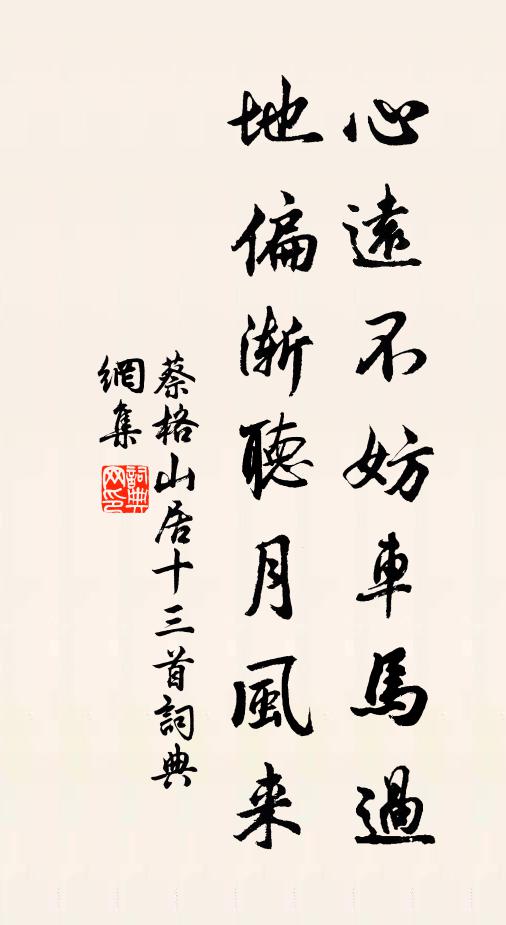 心遠不妨車馬過
地偏漸聽月風来
蔡格山居十三首詞典
網集
詞典
网印